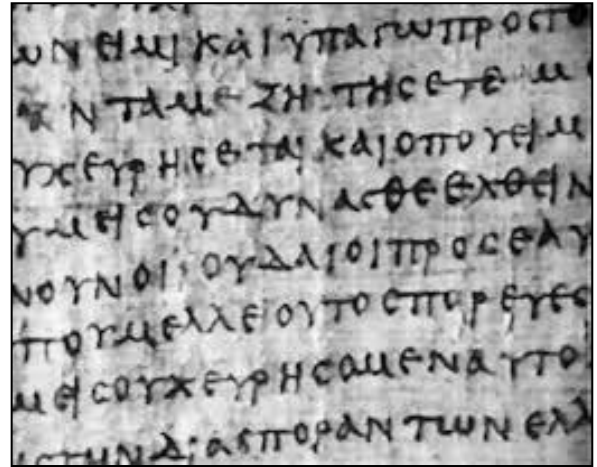 ωΝΕΙΜΙΚΑΙΥΠΑΓωΠΡΟϹΤΟ
ΝΤΑΜΕΖΗΤΗϹΕΤΕΜ
ΥΧΕΥΡΗϹΕΤΑΙΚΑΙΟΠΟΥΕΙΜ
ΥΜΕΙϹΟΥΔΥΝΑϹΘΕΕΛΘΕΙΝ
ΝΟΥΝΟΙΙΟΥΔΑΙΟΙΠΡΟϹΕΑΥ
ΠΟΥΜΕΛΛΕΙΟΥΤΟϹΠΟΡΕΥΕϹ
ΜΕΙϹΟΥΧΕΥΡΗϹΟΜΕΝΑΥΤΟ
ΙϹΤΗΝΔΙΑϹΠΟΡΑΝΤωΝΕΛΛ